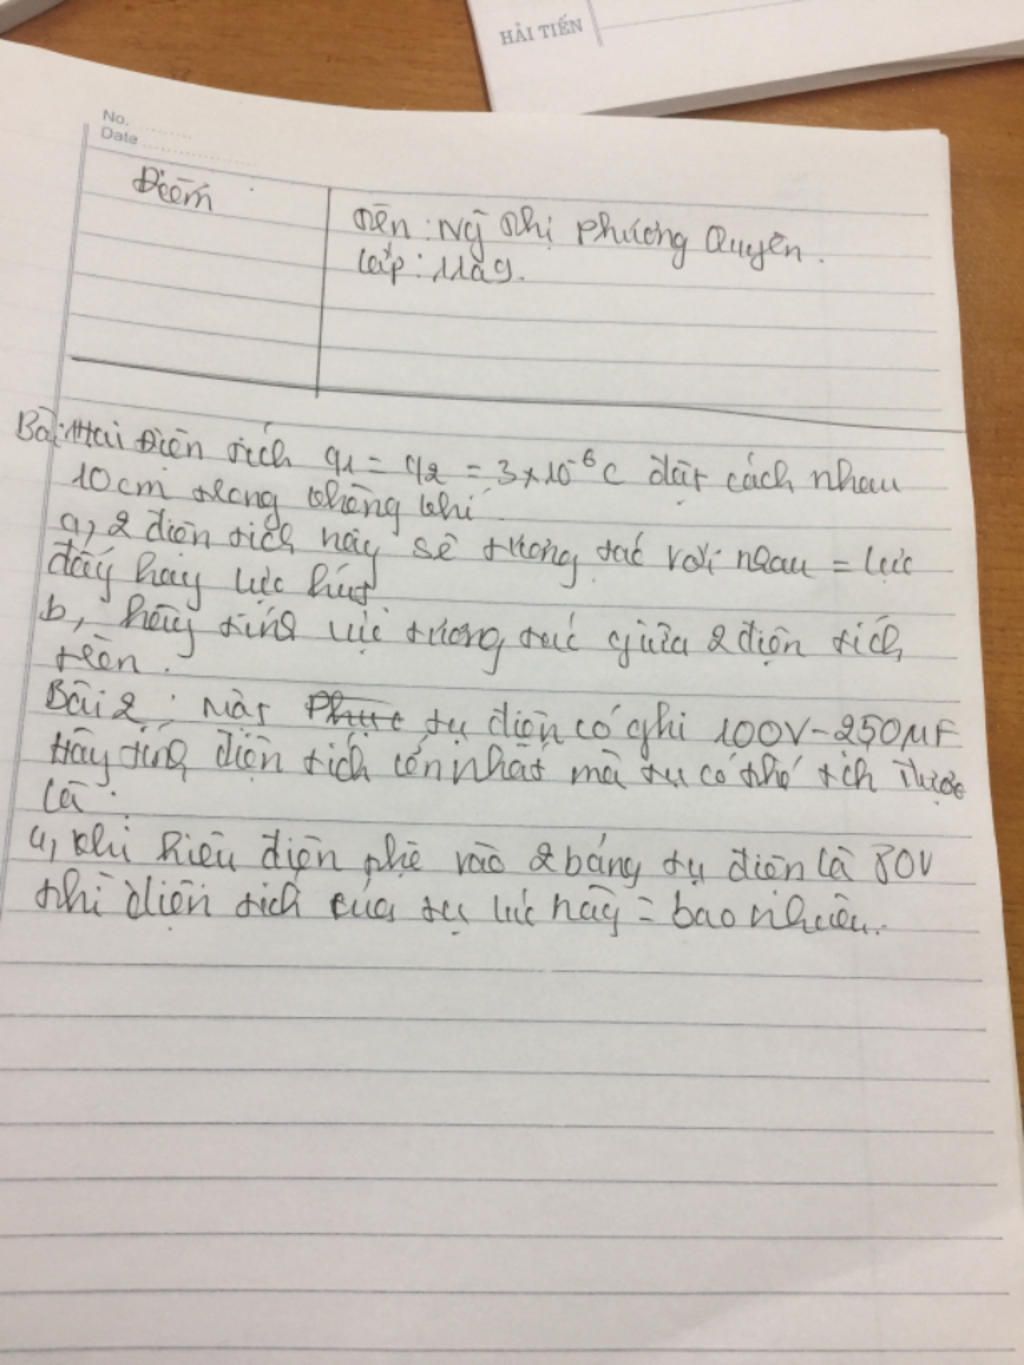 HẢI TIẾN
No.
Date
Điểm
Tên : Ng Thị Phương Quyên.
Lớp : 11a9.
Bài 1: Hai điện tích q1 = q2 = 3x10⁻⁶C đặt cách nhau
10cm trong không khí
a, 2 điện tích này sẽ tương tác với nhau = lực
đẩy hay lực hút
b, hãy tính lực tương tác giữa 2 điện tích
trên.
Bài 2 : Một tụ điện có ghi 100V-250µF
Hãy tính điện tích lớn nhất mà tụ có thể tích được
là :
a, khi hiệu điện thế vào 2 bảng tụ điện là 80V
thì điện tích của tụ lúc này = bao nhiêu.